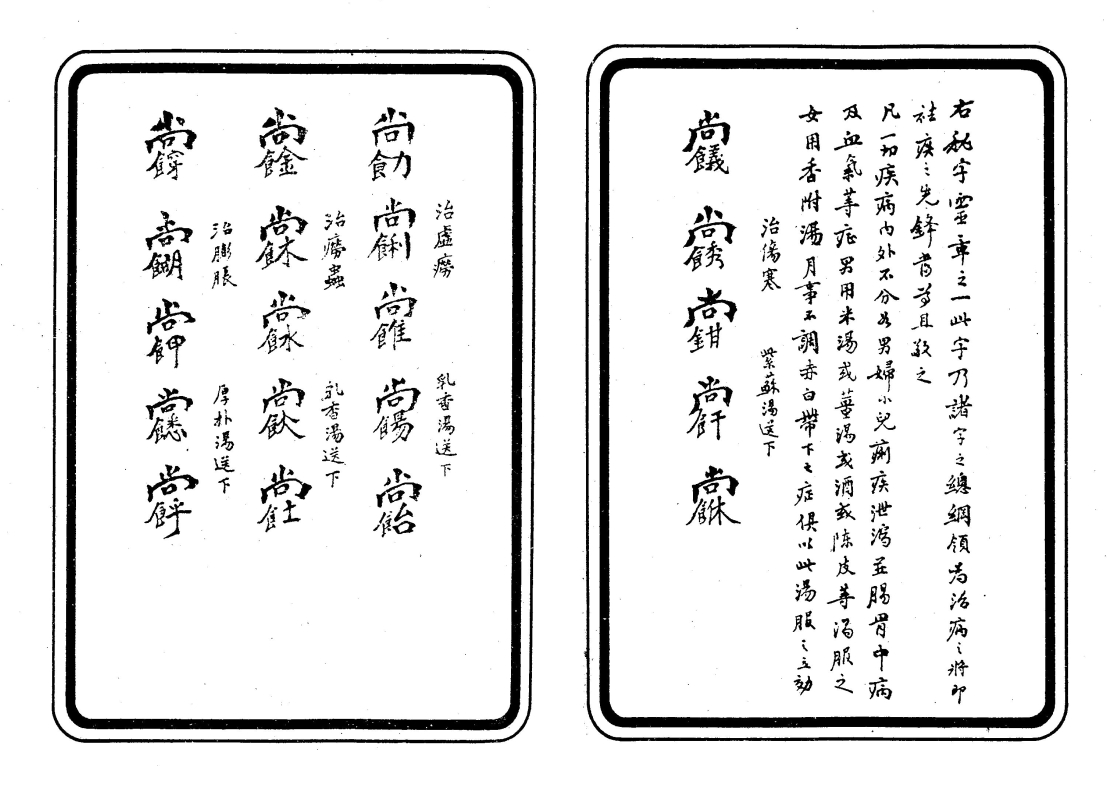 右秘字靈章之一此字乃諸字之總綱領為治病之將印
袪疾之先鋒當尊且敬之
凡一切疾病內外不分男婦小兒痢疾泄瀉並腸胃中病
及血氣等症男用米湯或薑湯或酒或陳皮等湯服之
女用香附湯月事不調赤白帶下七症俱以此湯服之立効
治傷寒 紫蘇湯送下
治虛癆 乳香湯送下
治癆蟲 乳香湯送下
治膨脹 厚朴湯送下